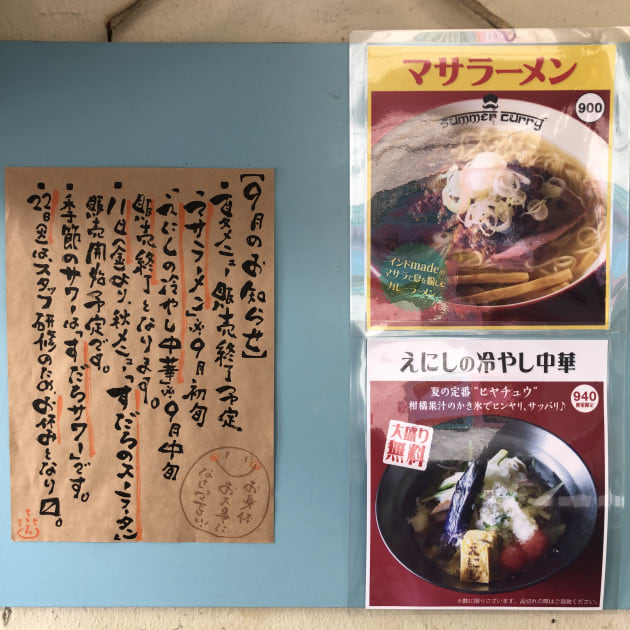 【9月のお知らせ】
・夏季メニュー販売終了予定
「マサラーメン」※9月初旬
「えにしの冷やし中華」※9月中旬
販売終了となります。
・11日(金)より、秋メニュー「すだちのスーラータン」
販売開始予定です。
・季節のサワーは「すだちサワー」です。
・22日(金)はスタッフ研修のためお休みとなり〼。
お身体
お大事に
なさって下さい!
マサラーメン
900
summer curry
インドmadeの
マサラで夏を愉しむ
カレーラーメン
えにしの冷やし中華
夏の定番“ヒヤチュウ”
柑橘果汁のかき氷でヒンヤリ、サッパリ♪
940
大盛り
無料
えにし
※数に限りございます。品切れの際はご容赦ください。